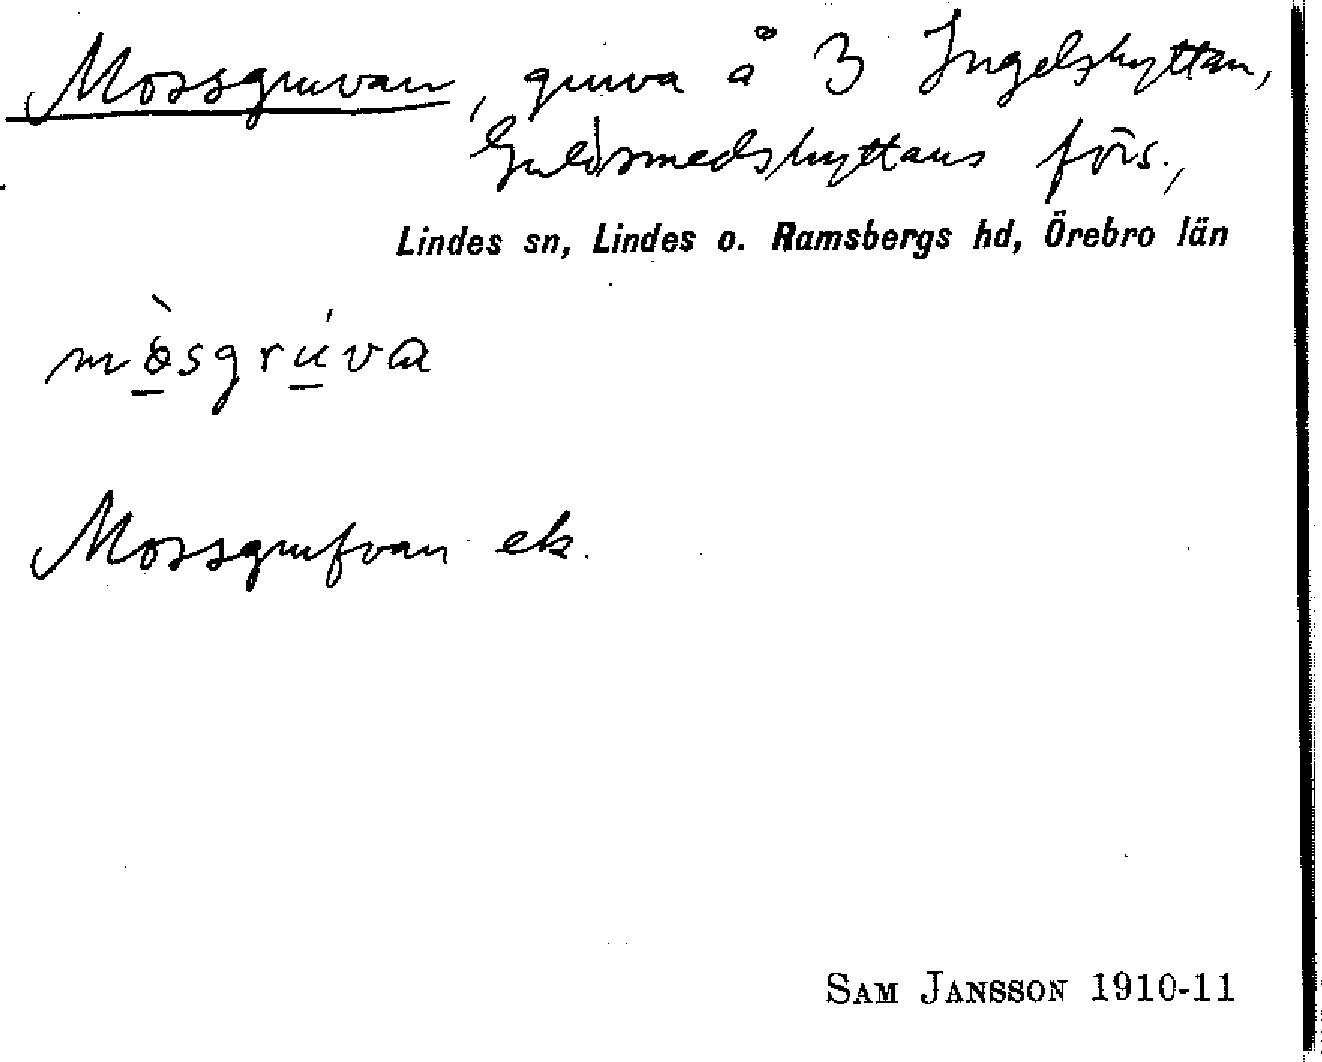 Mossgruvan, gruva å 3 Ingelshyttan,
Guldsmedshyttans förs.,
Lindes sn, Lindes o. Ramsbergs hd, Örebro län
mò̱sgrú̱va
Mossgrufvan ek.
SAM JANSSON 1910-11